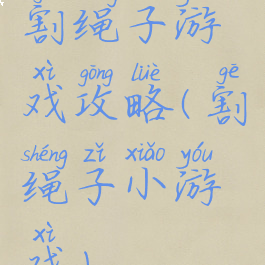 割绳子游
xì gōng lüè gē
戏攻略(割
shéng zǐ xiǎo yóu
绳子小游
xì
戏)